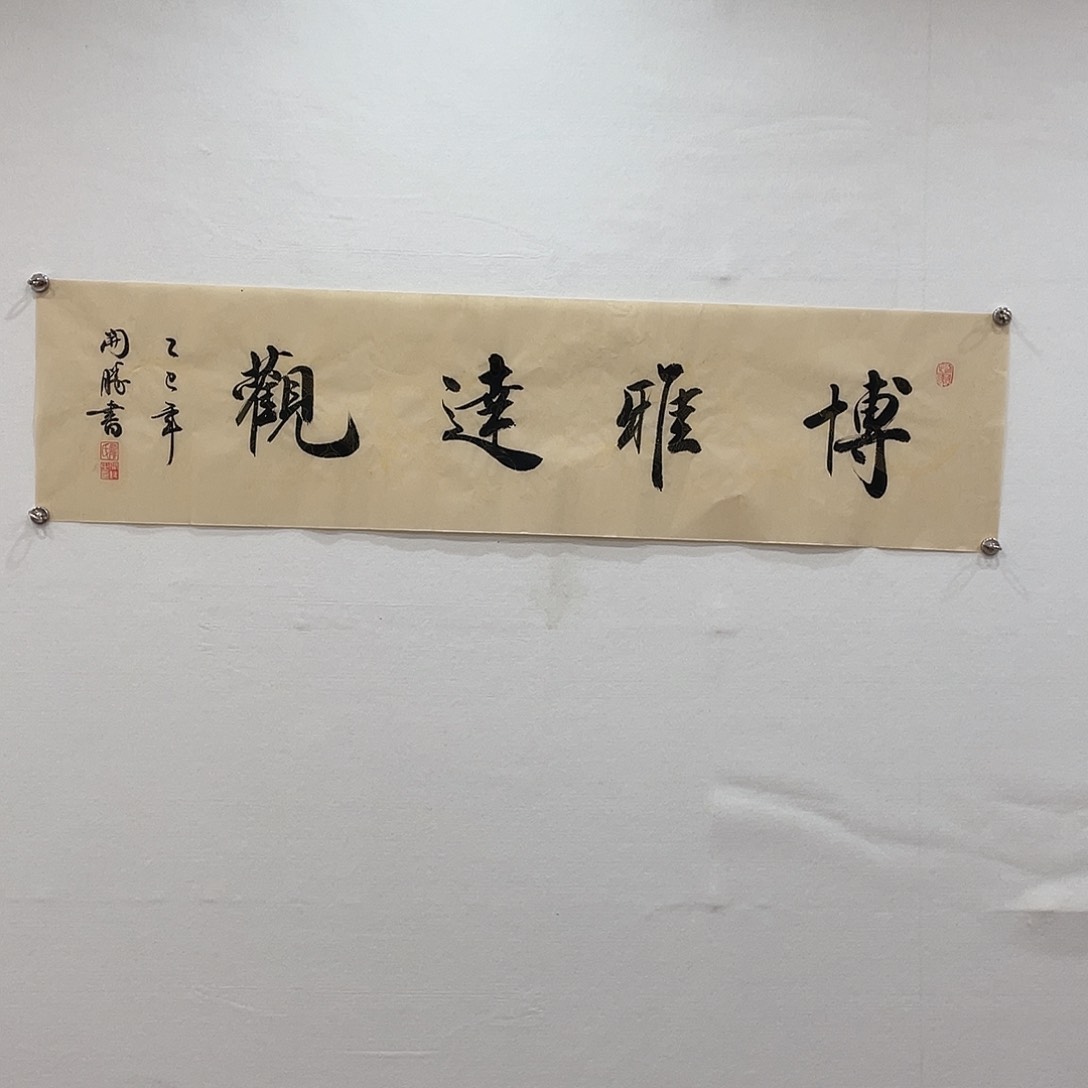 博雅達觀
乙巳年
開勝書